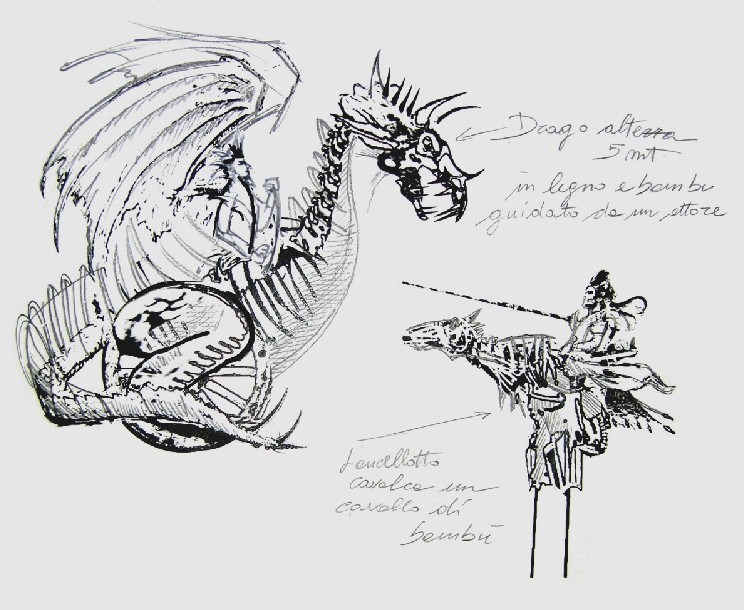 Drago altezza
5 mt
in legno e bambu
guidato da un attore
Lancillotto
cavalca un
cavallo di
bambù